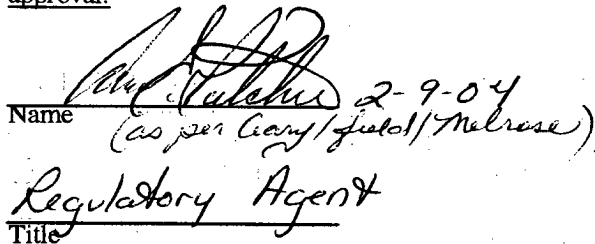 approval.
2-9-04
Name
(as per Gary/field/Melrose)
Regulatory Agent
Title